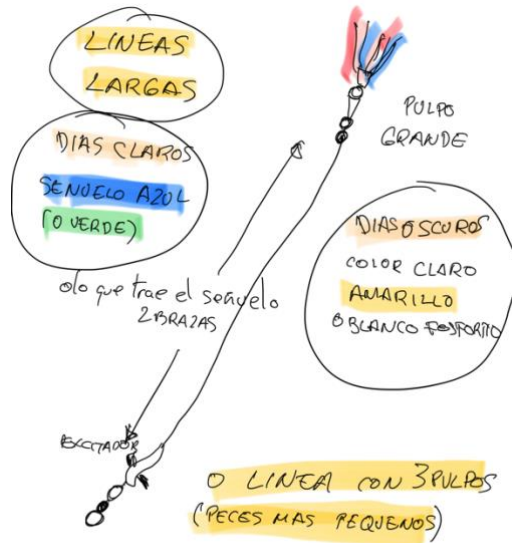 LINEAS
LARGAS
DIAS CLAROS
SEÑUELO AZUL
(O VERDE)
PULPO
GRANDE
DIAS OSCUROS
COLOR CLARO
AMARILLO
O BLANCO FOSFORITO
o lo que trae el señuelo
2 BRAZAS
EXCITADOR
O LINEA CON 3 PULPOS
(PECES MAS PEQUEÑOS)